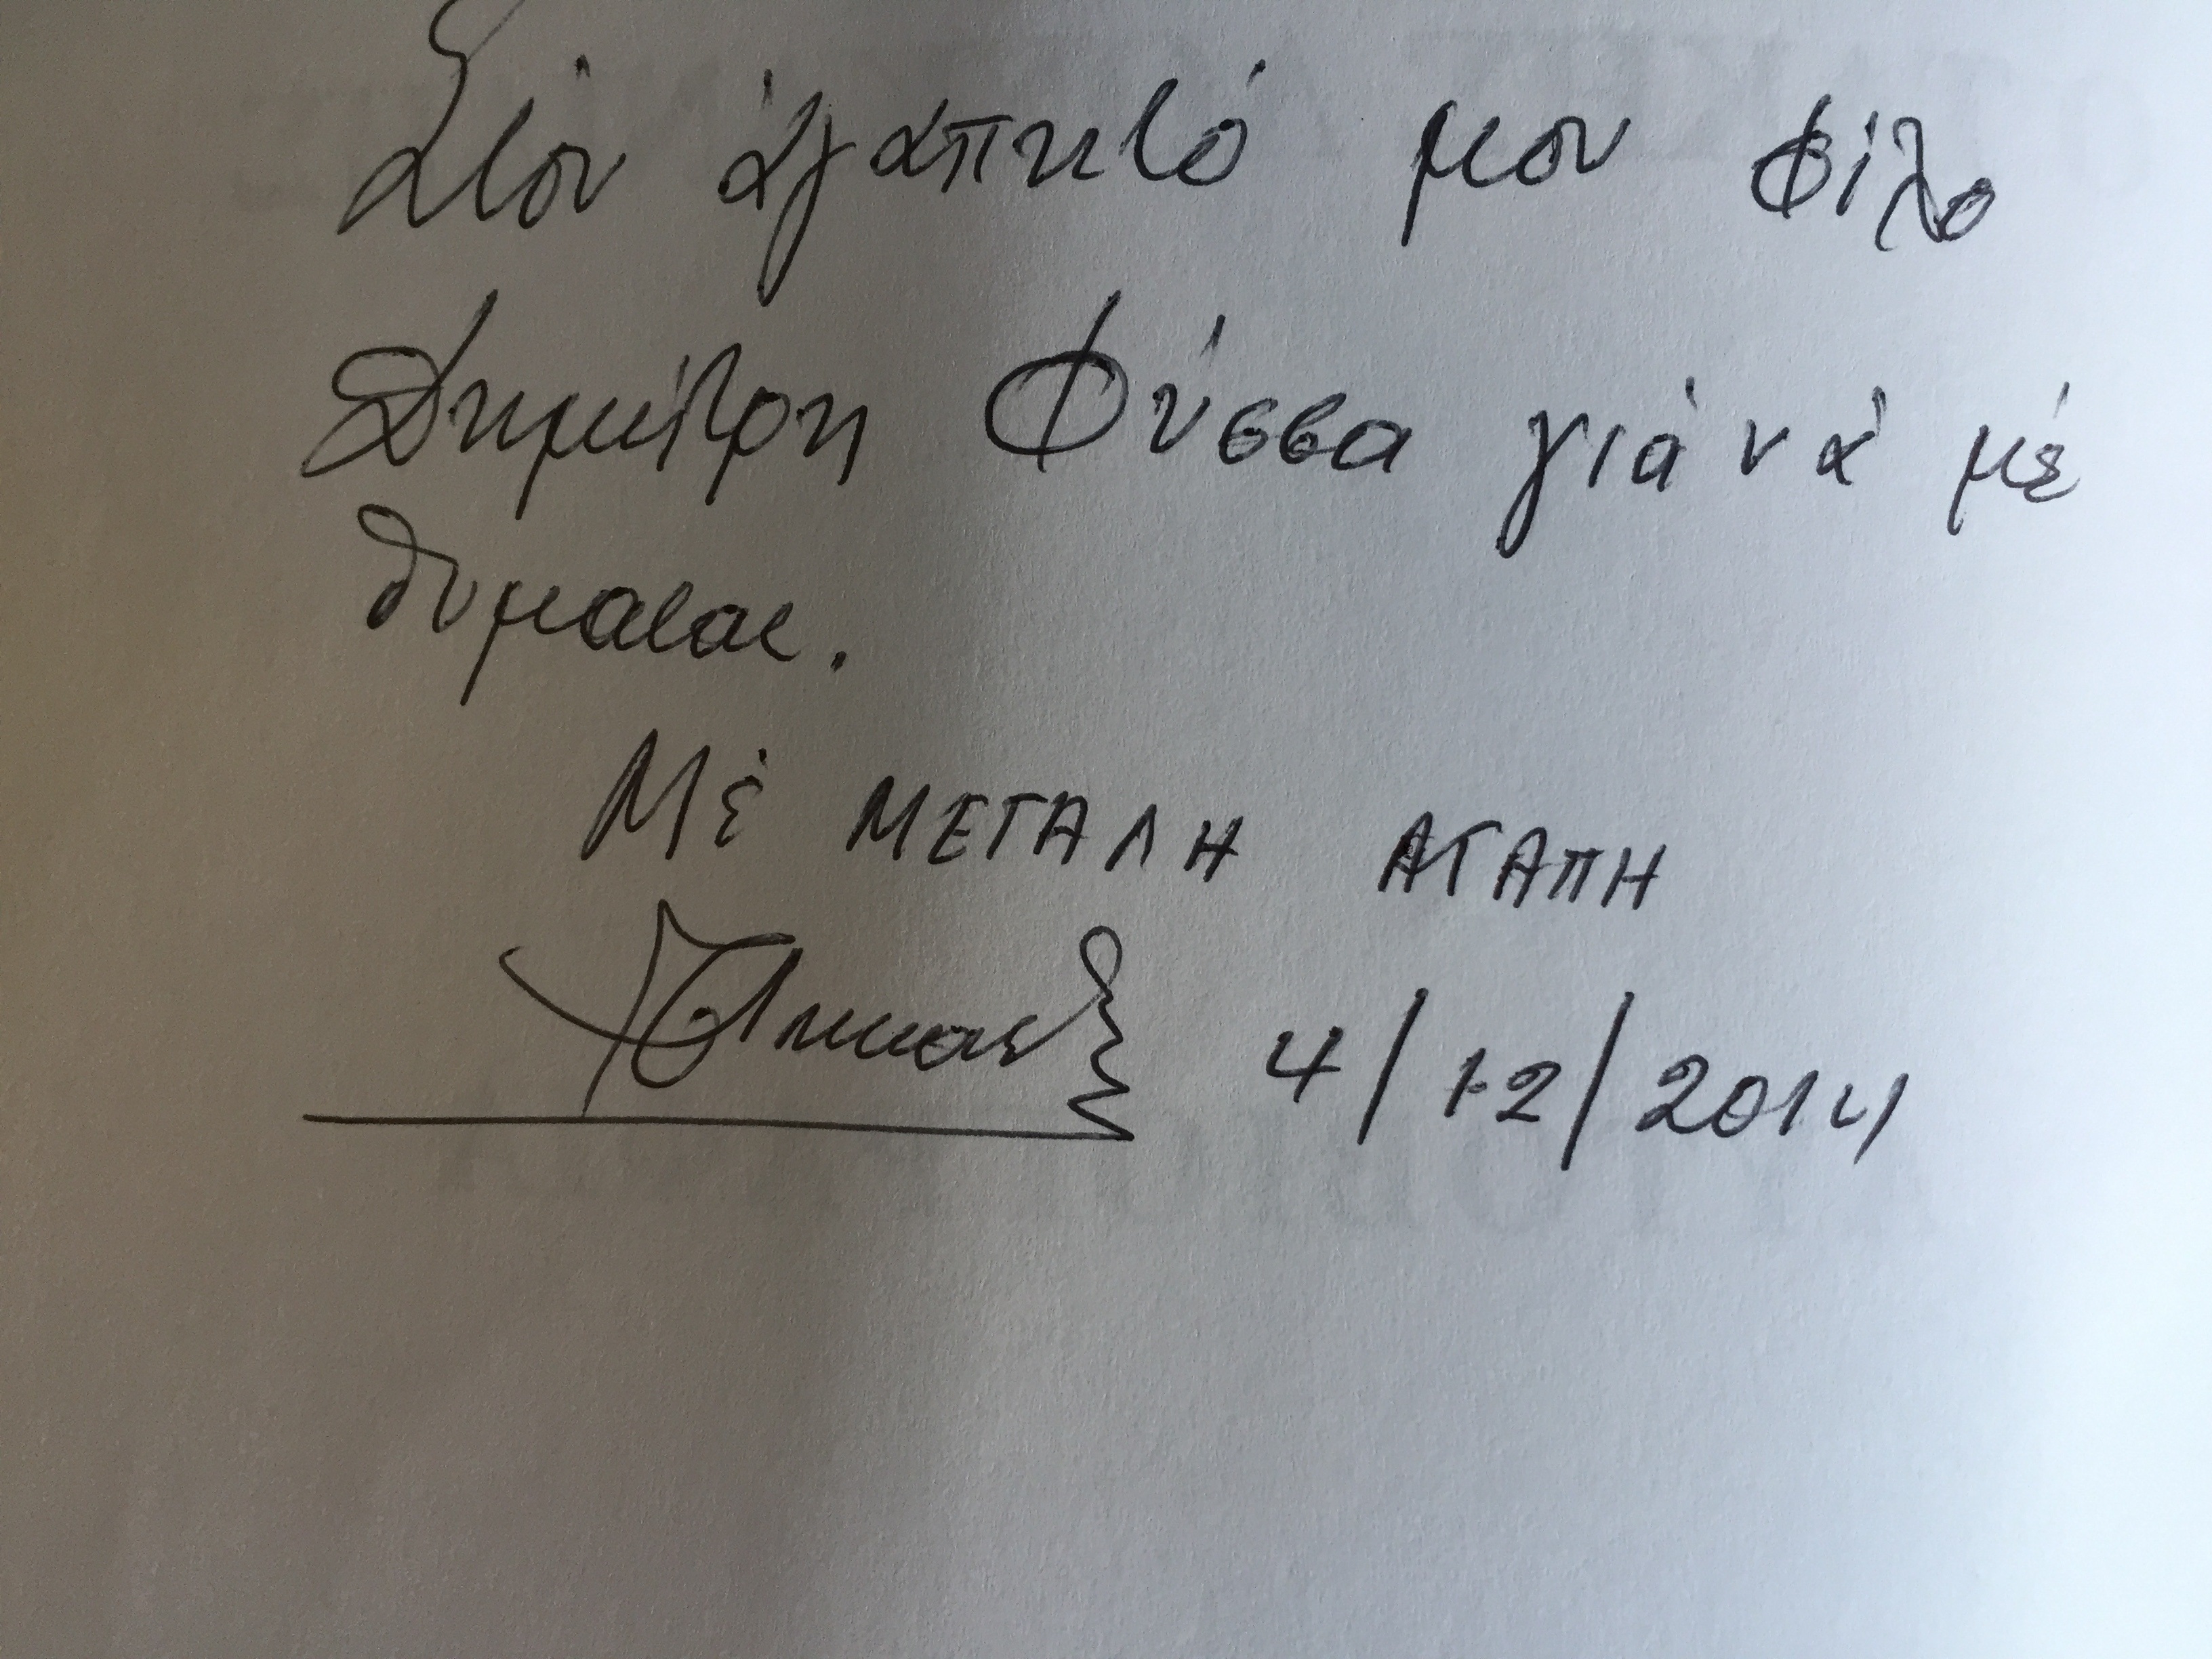 Στόν ἀγαπητό μου φίλο
Δημήτρη Φύσσα γιά νά μέ
θυμᾶται.
Μέ ΜΕΓΑΛΗ ΑΓΑΠΗ
4/12/2014